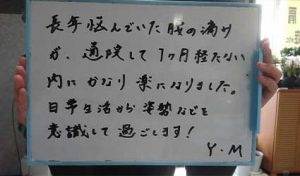 長年悩んでいた腰の痛み
が、通院して1ヶ月経たない
内にかなり楽になりました。
日常生活から姿勢などを
意識して過ごします!
Y.M